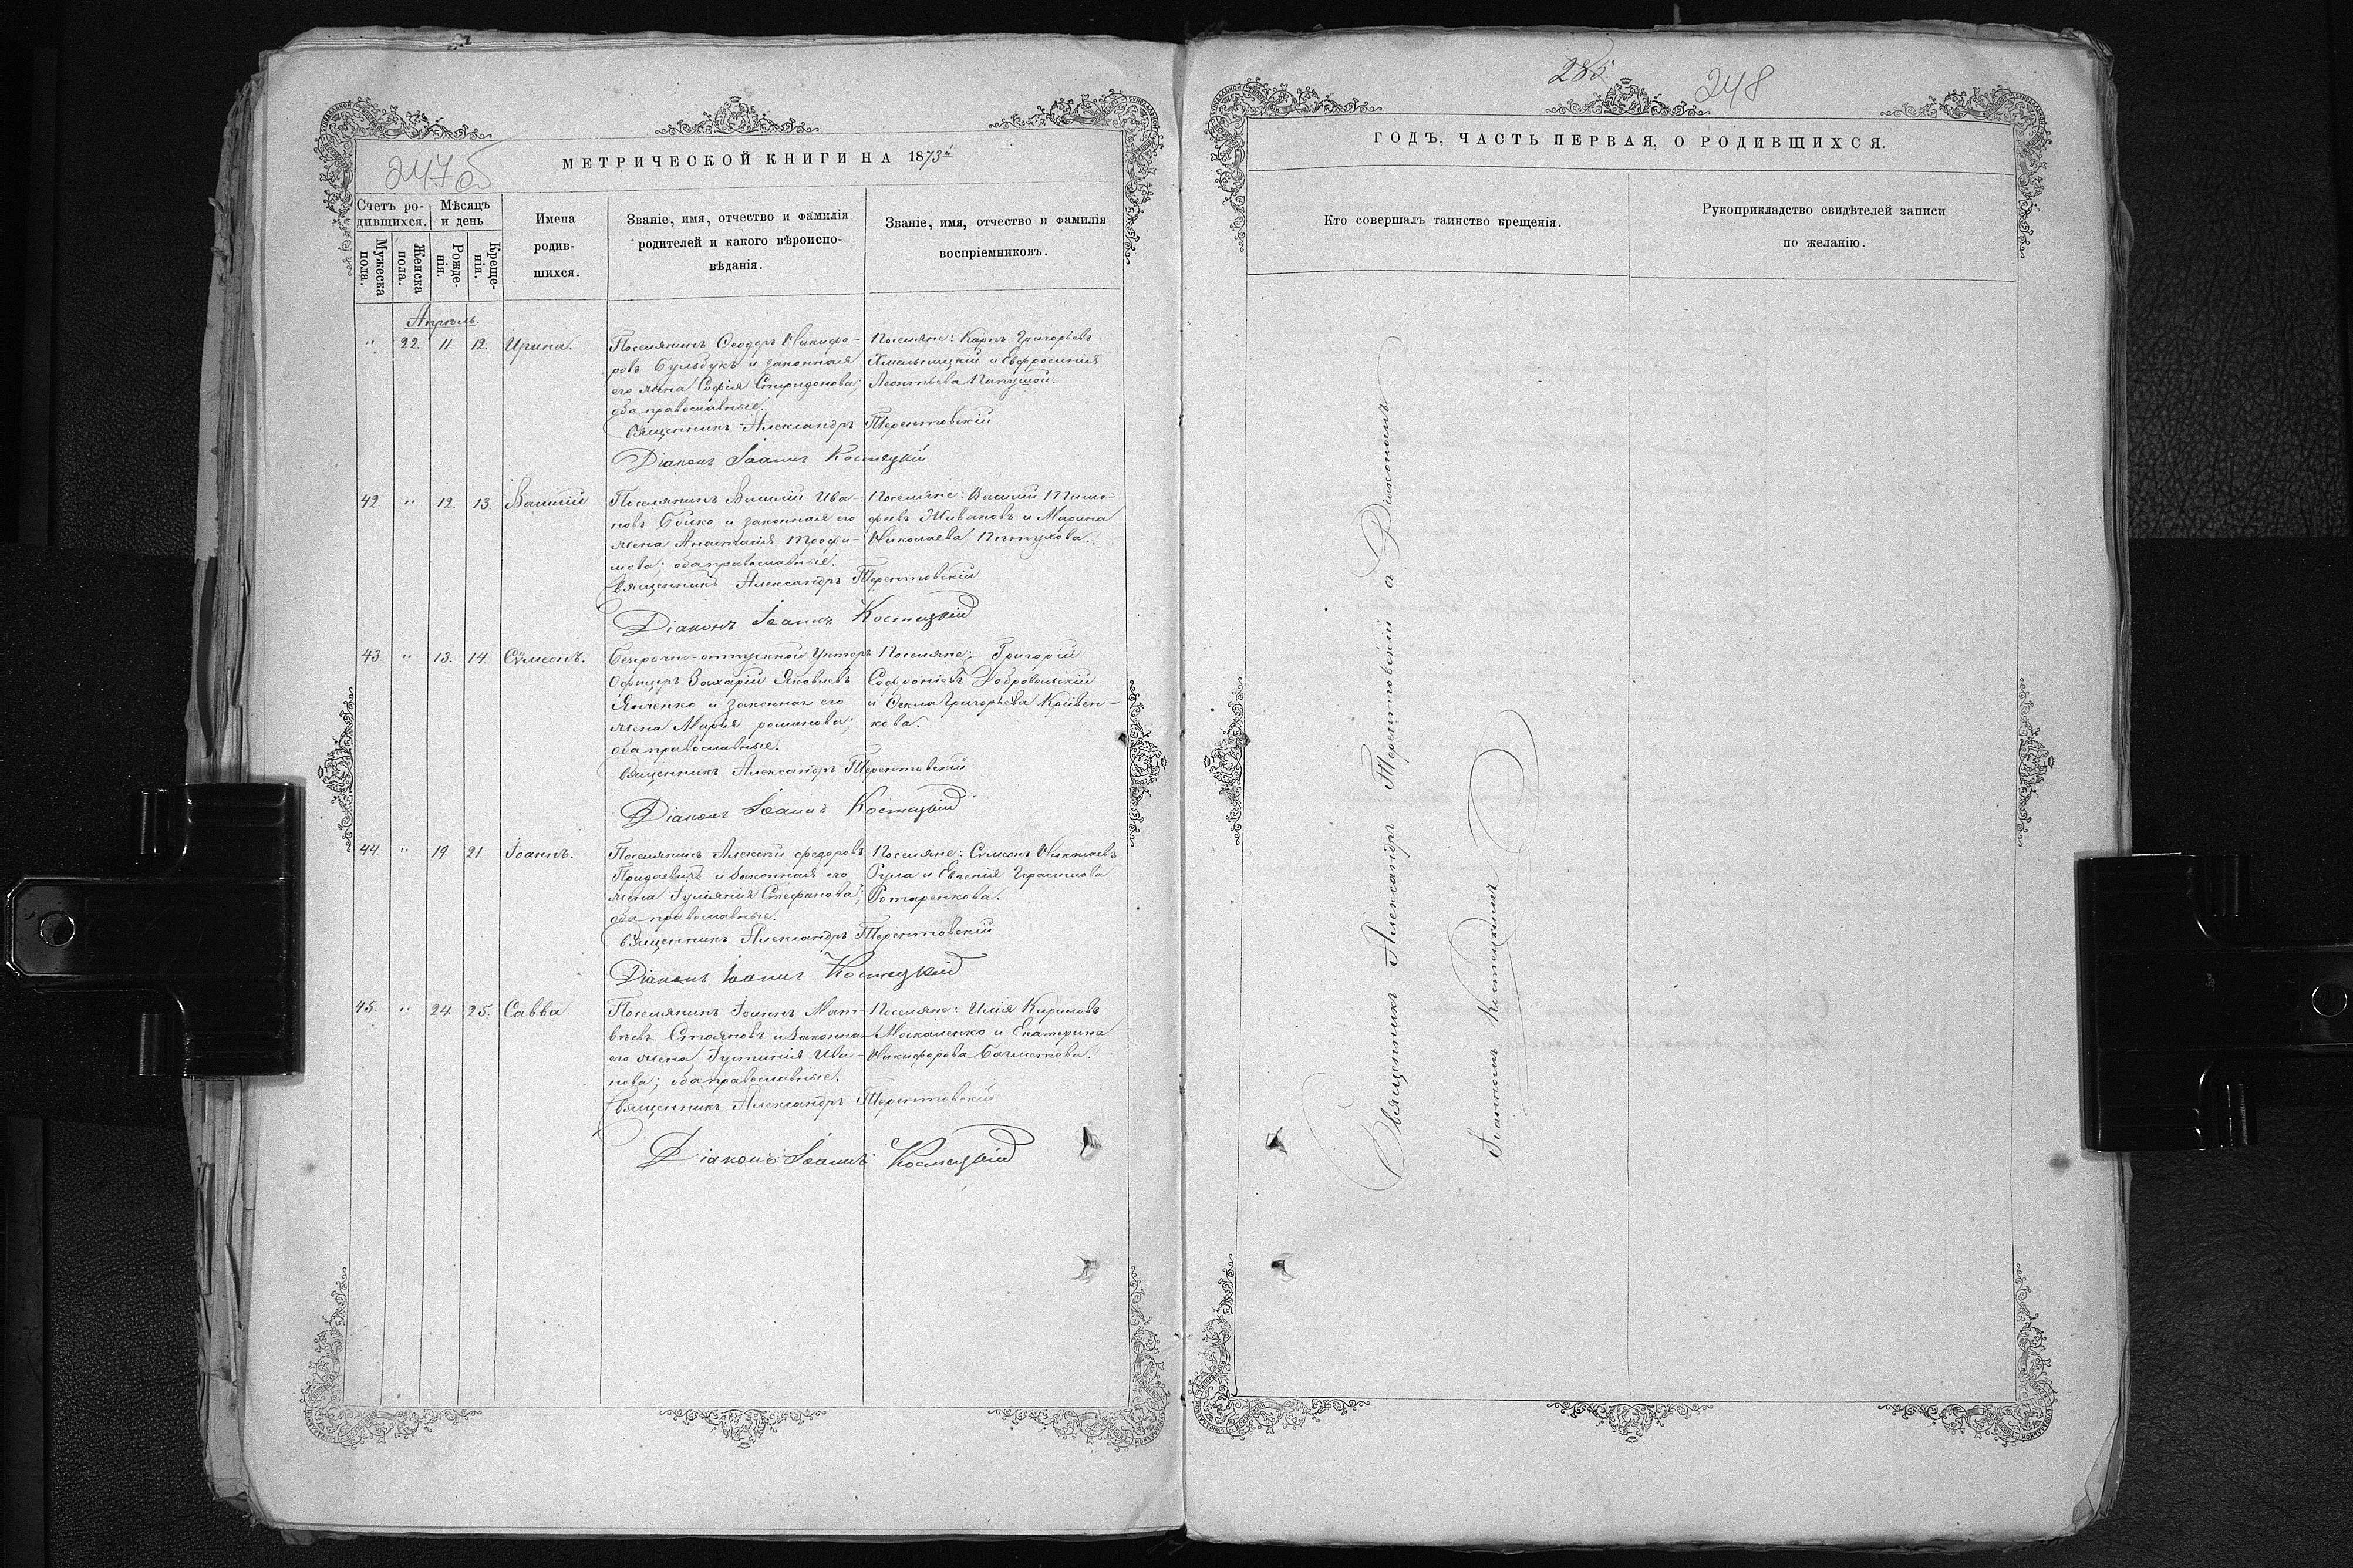 247об
МЕТРИЧЕСКОЙ КНИГИ НА 1873й
Счетъ ро-
дившихся.
Мѣсяцъ
и день
Мужеска
пола.
Женска
пола.
Рожде-
нія.
Креще-
нія.
Имена
родив-
шихся.
Званіе, имя, отчество и фамилія
родителей и какого вѣроиспо-
вѣданія.
Званіе, имя, отчество и фамилія
воспріемниковъ.
Апрель.
" 22. 11. 12. Ирина.
Поселянинъ Ѳеодоръ Никифо-
ровъ Бульбукъ и законная
его жена Софія Спиридонова;
оба православные.
Поселяне: Карпъ Григорьевъ
Хмельницкій и Евфросинія
Леонтьева
Священникъ Александръ Терентовскій
Діаконъ Іоаннъ Костецкій
42. " 12. 13. Василій
Поселянинъ Василій Ива-
новъ Бойко и законная его
жена Анастасія Трофи-
мова; оба православные.
Поселяне: Василій Тимо-
феевъ Живановъ и Марина
Николаева Питухова.
Священникъ Александръ Терентовскій
Діаконъ Іоаннъ Костецкій
43. " 13. 14. Сѵмеонъ.
Безсрочно-отпускной Унтеръ
Офицеръ Захарій Яковлевъ
Янченко и законная его
жена Марія романова;
оба православные.
Поселяне: Григорій
Софроніевъ Добровольскій
и Ѳекла Григорьева Кривен-
кова.
Священникъ Александръ Терентовскій
Діаконъ Іоаннъ Костецкій
44. " 19 21. Іоаннъ.
Поселянинъ Алексѣй федоровъ
Придаевичъ и законная его
жена Іуліянія Стефанова;
оба православные.
Поселяне: Сѵмеонъ Николаевъ
Гула и Евгенія Герасимова
Ротаренкова.
Священникъ Александръ Терентовскій
Діаконъ Іоаннъ Костецкій
45. " 24. 25. Савва.
Поселянинъ Іоаннъ Мат-
вѣевъ Стояновъ и законная
его жена Іустинія Ива-
нова; оба православные.
Поселяне: Илія Кириловъ
Москаленко и Екатерина
Никифорова Бахметова.
Священникъ Александръ Терентовскій
Діаконъ Іоаннъ Костецкій
285.
248
ГОДЪ, ЧАСТЬ ПЕРВАЯ, О РОДИВШИХСЯ.
Кто совершалъ таинство крещенія.
Рукоприкладство свидѣтелей записи
по желанію.
Священникъ Александръ Терентовскій с Діакономъ
Іоанномъ Костецкимъ